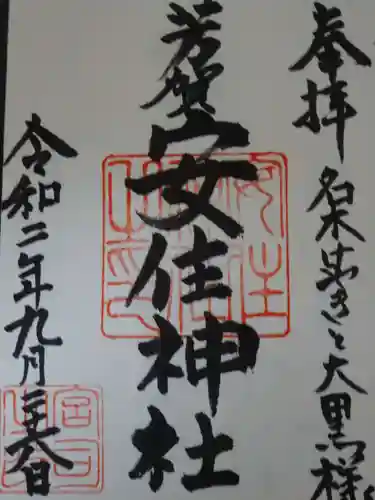 奉拝 名木歩きと大黒様
芳賀
安住神社
令和二年九月二十日